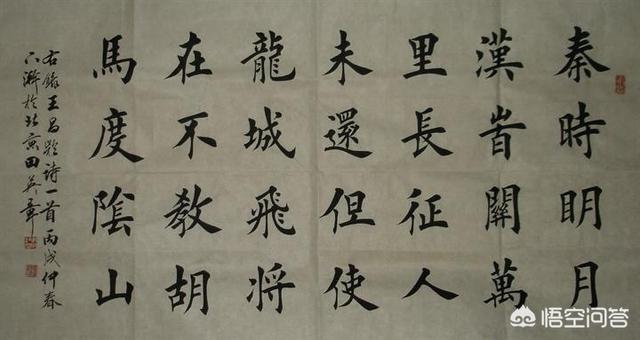 秦時眀月
漢旹關萬
里長征人
未還但使
龍城飛將
在不教胡
馬度陰山
右錄王昌齡詩一首丙戌仲春
下澣於北京田英章
悟空问答